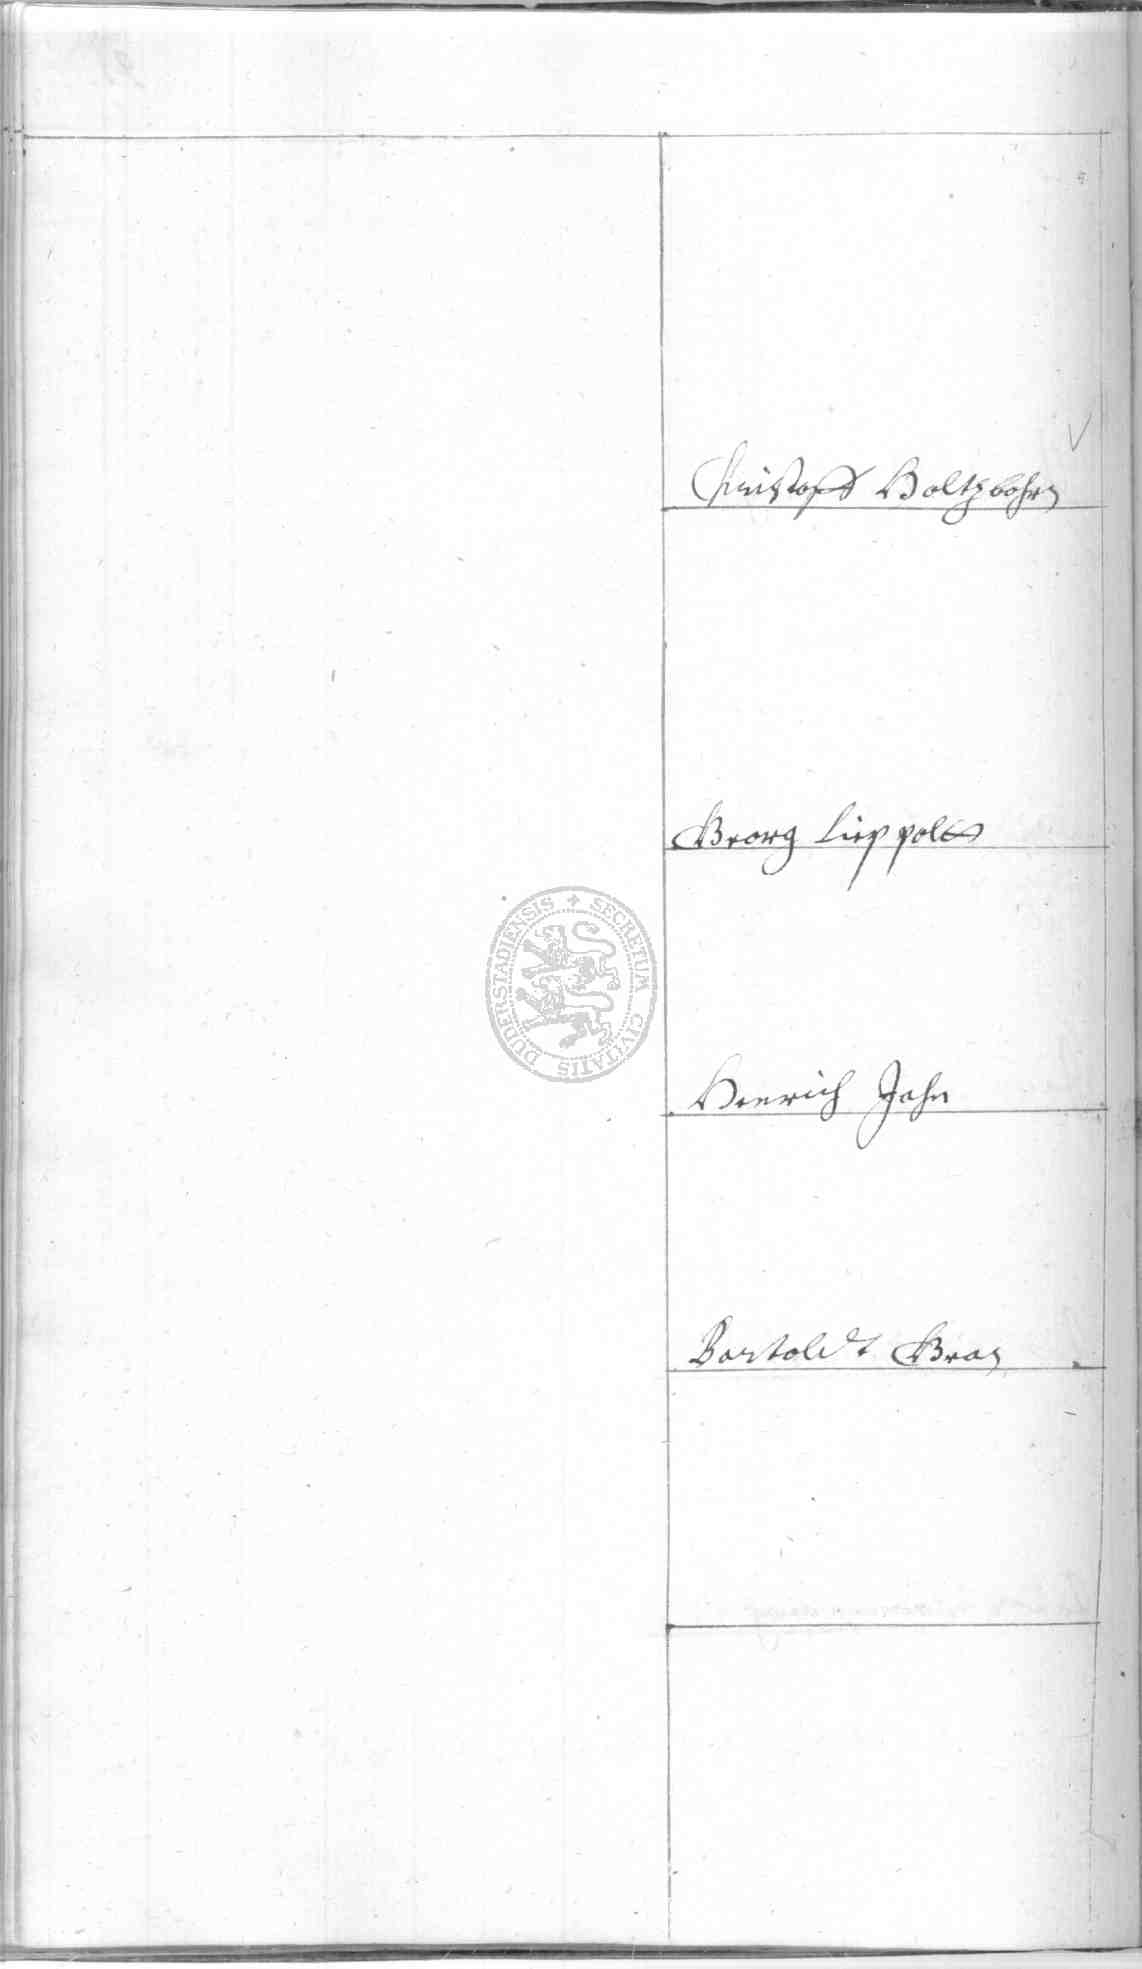 Christoff Holtzbohrn
Georg Lieppoldt
SECRETUM CIVITATIS DUDERSTADIENSIS
Henrich Jahn
Bartoldt